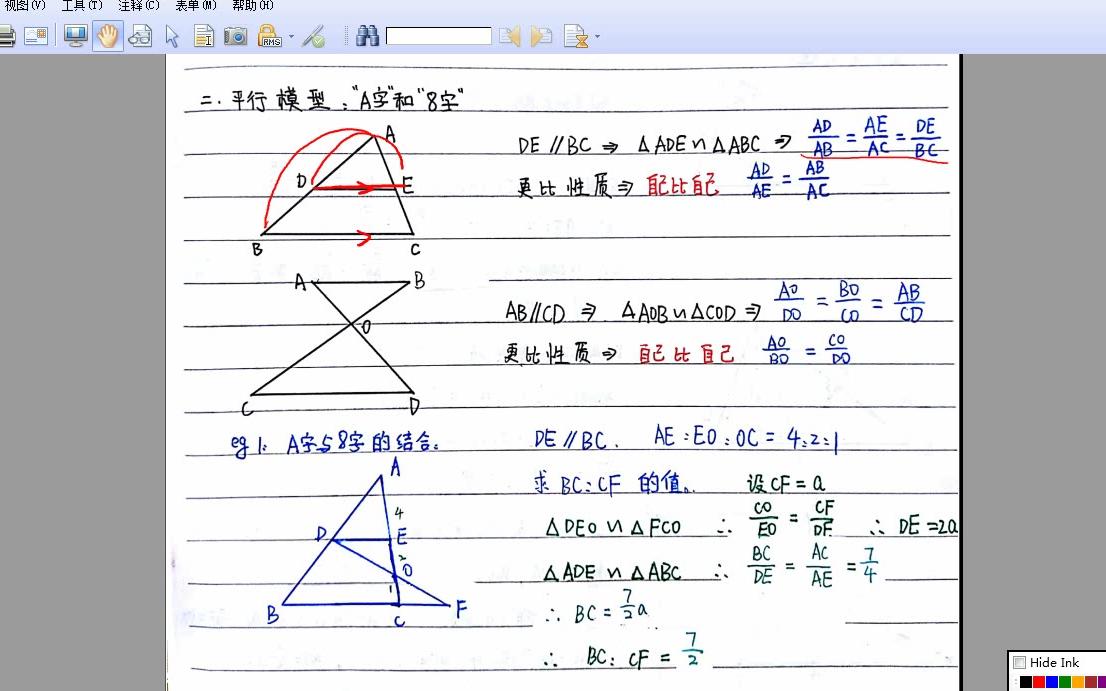 视图(V) 工具(T) 注释(C) 表单(M) 帮助(H)
RMS
二.平行模型:"A字"和"8字"
A
D E
B C
DE∥BC ⇒ △ADE∽△ABC ⇒ AD/AB = AE/AC = DE/BC
更比性质⇒ 自己比自己 AD/AE = AB/AC
A B
O
C D
AB∥CD ⇒ △AOB∽△COD ⇒ AO/DO = BO/CO = AB/CD
更比性质⇒ 自己比自己 AO/BO = CO/DO
eg 1: A字与8字的结合。
DE∥BC. AE:EO:OC = 4:2:1
求 BC:CF 的值。 设CF=a
△DEO∽△FCO ∴ CO/EO = CF/DE ∴ DE=2a
△ADE∽△ABC ∴ BC/DE = AC/AE = 7/4
∴ BC=7/2a
∴ BC:CF = 7/2
A
4
D E
2
O
1
B C F
Hide Ink